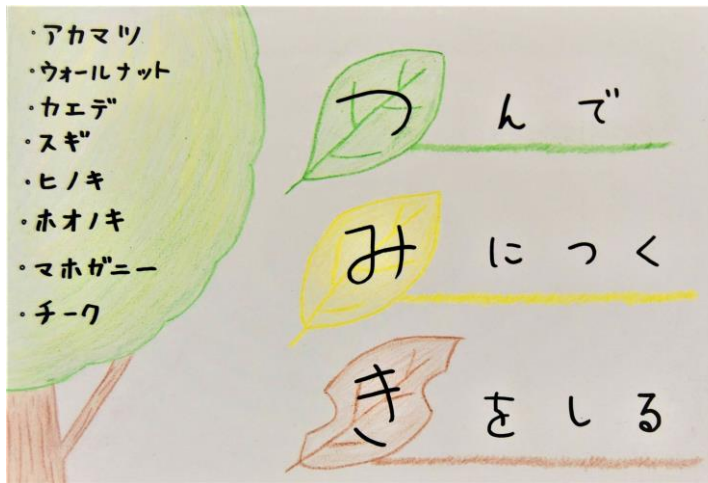 ・アカマツ
・ウォールナット
・カエデ
・スギ
・ヒノキ
・ホオノキ
・マホガニー
・チーク
つんで
みにつく
きをしる